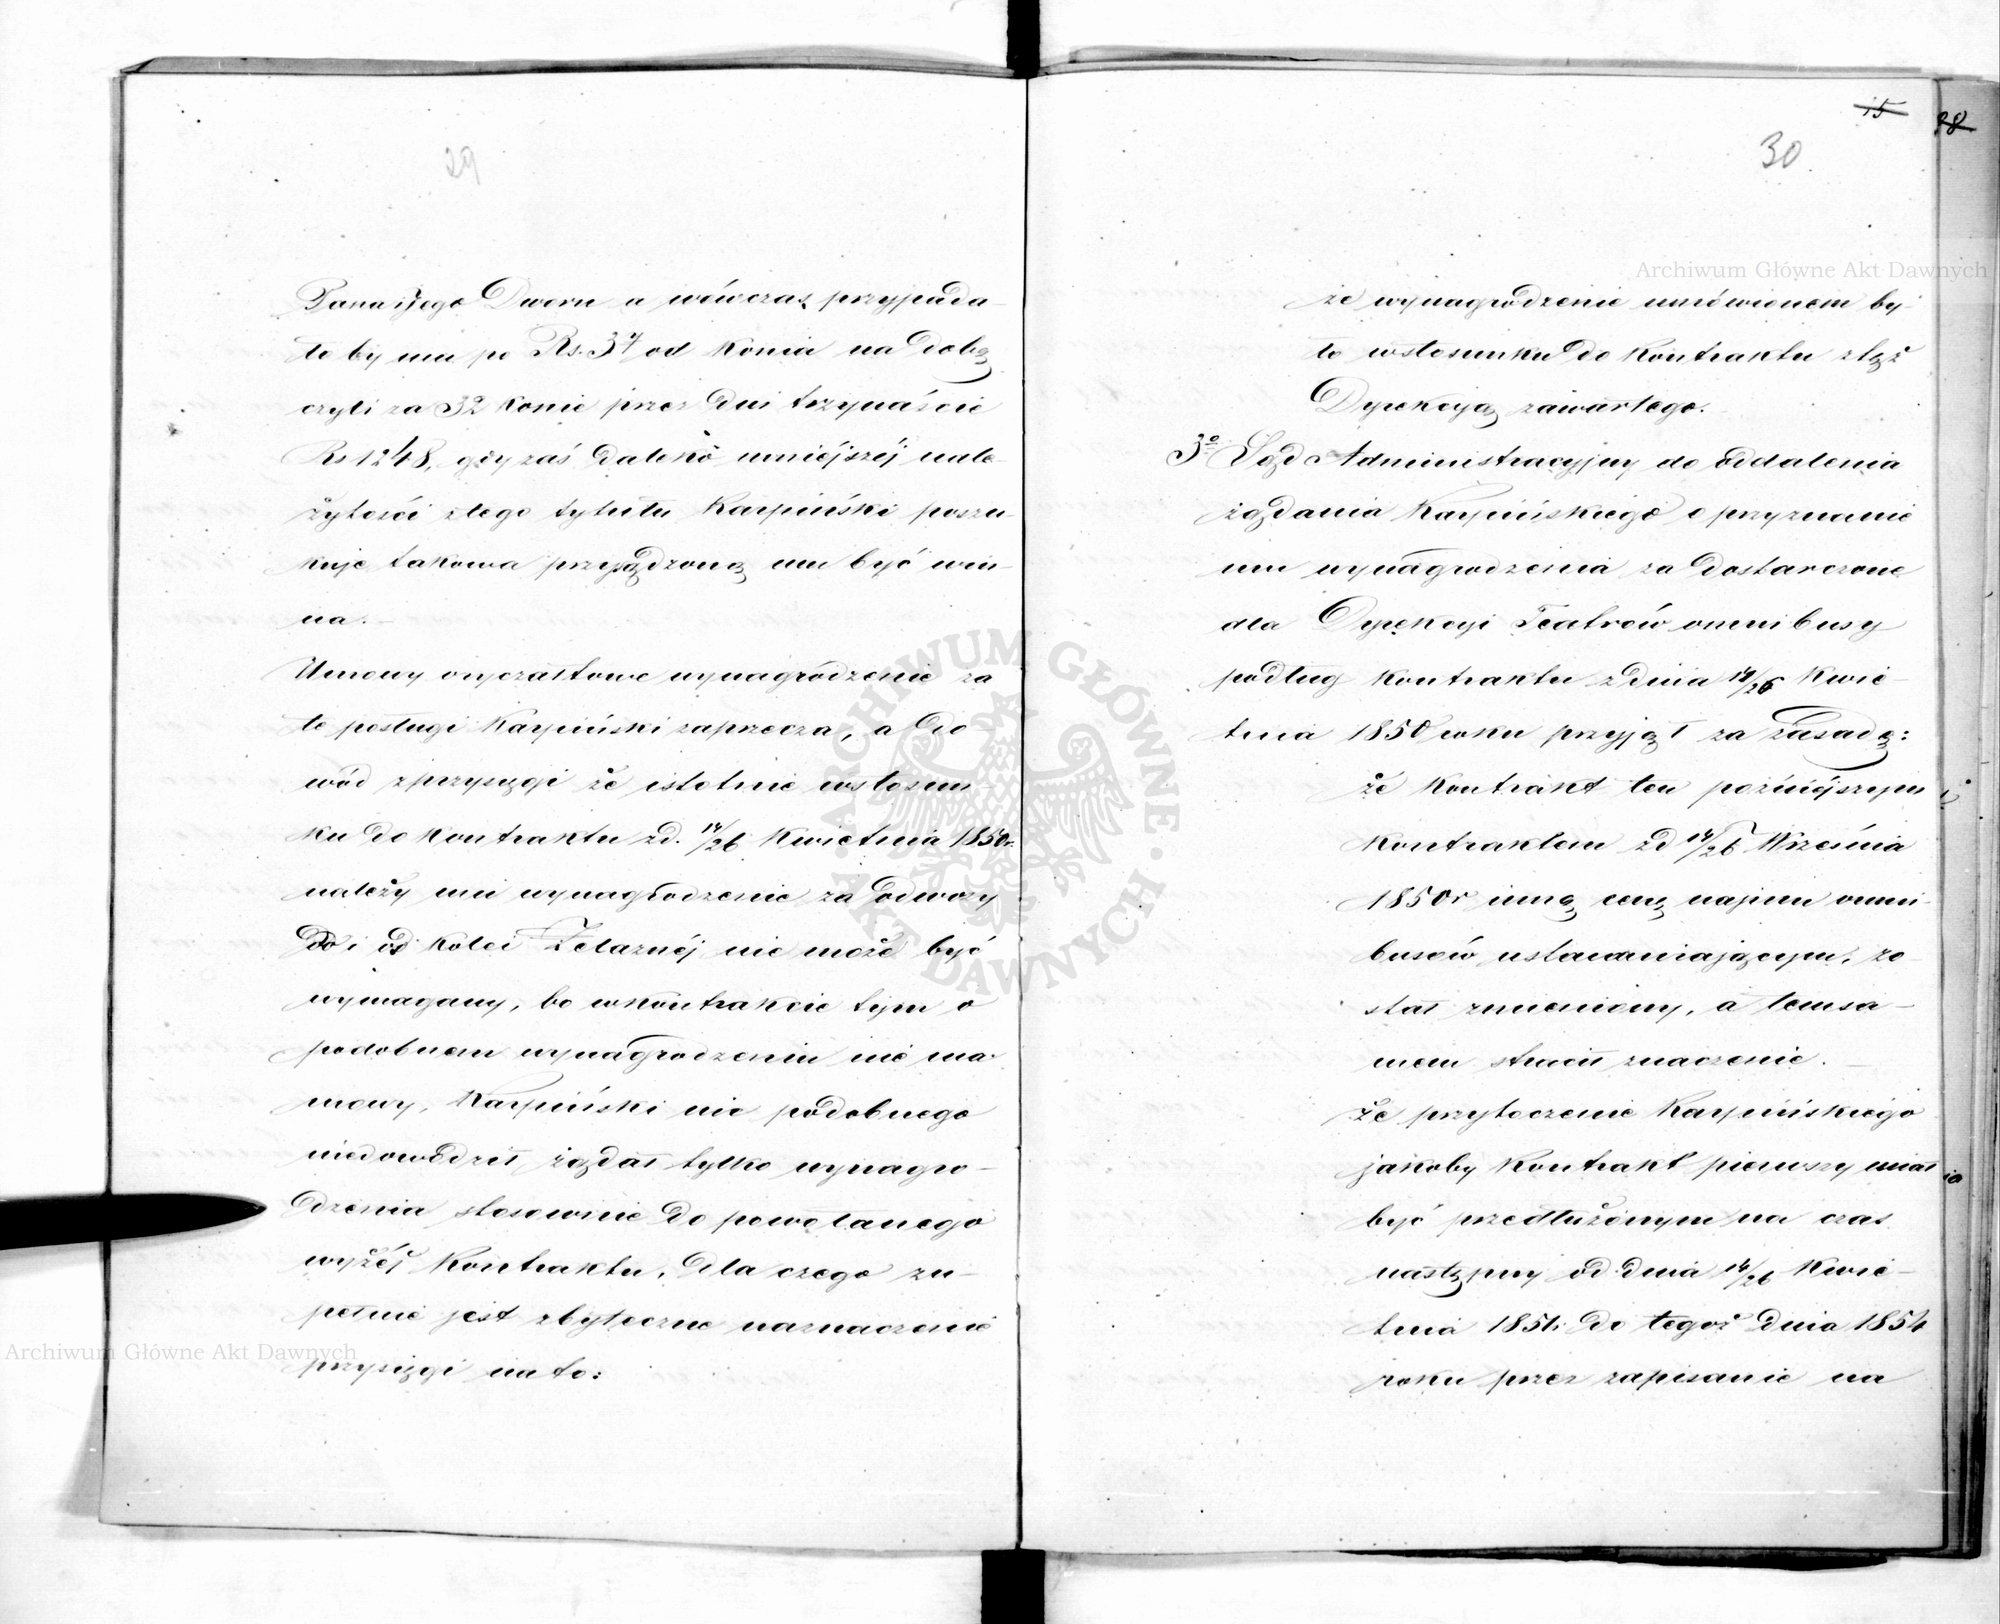 29
Pana i Jego Dworu a wówczas przypada-
ło by mu po Rs. 3 od Konia na dobę
czyli za 32 konie przez dni trzynaście
Rs 1248, gdy zaś daleko mniéjszéj nale-
żytości z tego tytułu Karpiński poszu-
kuje takowa przysądzoną mu być win-
na.-
Umowy oryczałtowe wynagrodzenie za
te posługi Karpiński zaprzecza, a do-
wód z przysięgi że istotnie w stosun-
ku do kontraktu z d. 14/26 Kwietnia 1850r.
należy mu wynagrodzenie za odwozy
do i od Kolei Żelaznéj nie może być
wymagany, bo w kontrakcie tym o
podobnem wynagrodzeniu nie ma
mowy, Karpiński nic podobnego
niedowodził, żądał tylko wynagro-
dzenia stosownie do powołanego
wyżéj Kontraktu, dla czego zu-
pełnie jest zbyteczne naznaczenie
przysięgi na to:
15
30
że wynagrodzenie umówionem by-
ło w stosunku do Kontraktu z tąż
Dyrekcyą zawartego.
3º Sąd Administracyjny do oddalenia
żądania Karpińskiego o przyznanie
mu wynagrodzenia za dostarczone
dla Dyrekcyi Teatrów omnibusy
podług kontraktu z dnia 14/26 Kwie-
tnia 1850 roku przyjął za zasadę:
że Kontrakt ten poźniéjszym
Kontraktem z d 14/26 Września
1850r inną cenę najmu omni-
busów ustanawiającym, zo-
stał zmieniony, a temsa-
mem stracił znaczenie.-
że przytoczenie Karpińskiego
jakoby Kontrakt pierwszy miał
być przedłużonym na czas
następny od dnia 14/26 Kwie-
tnia 1851. do tegoż dnia 1854
roku przez zapisanie na
Archiwum Główne Akt Dawnych
Archiwum Główne Akt Dawnych
ARCHIWUM GŁÓWNE · AKT DAWNYCH ·